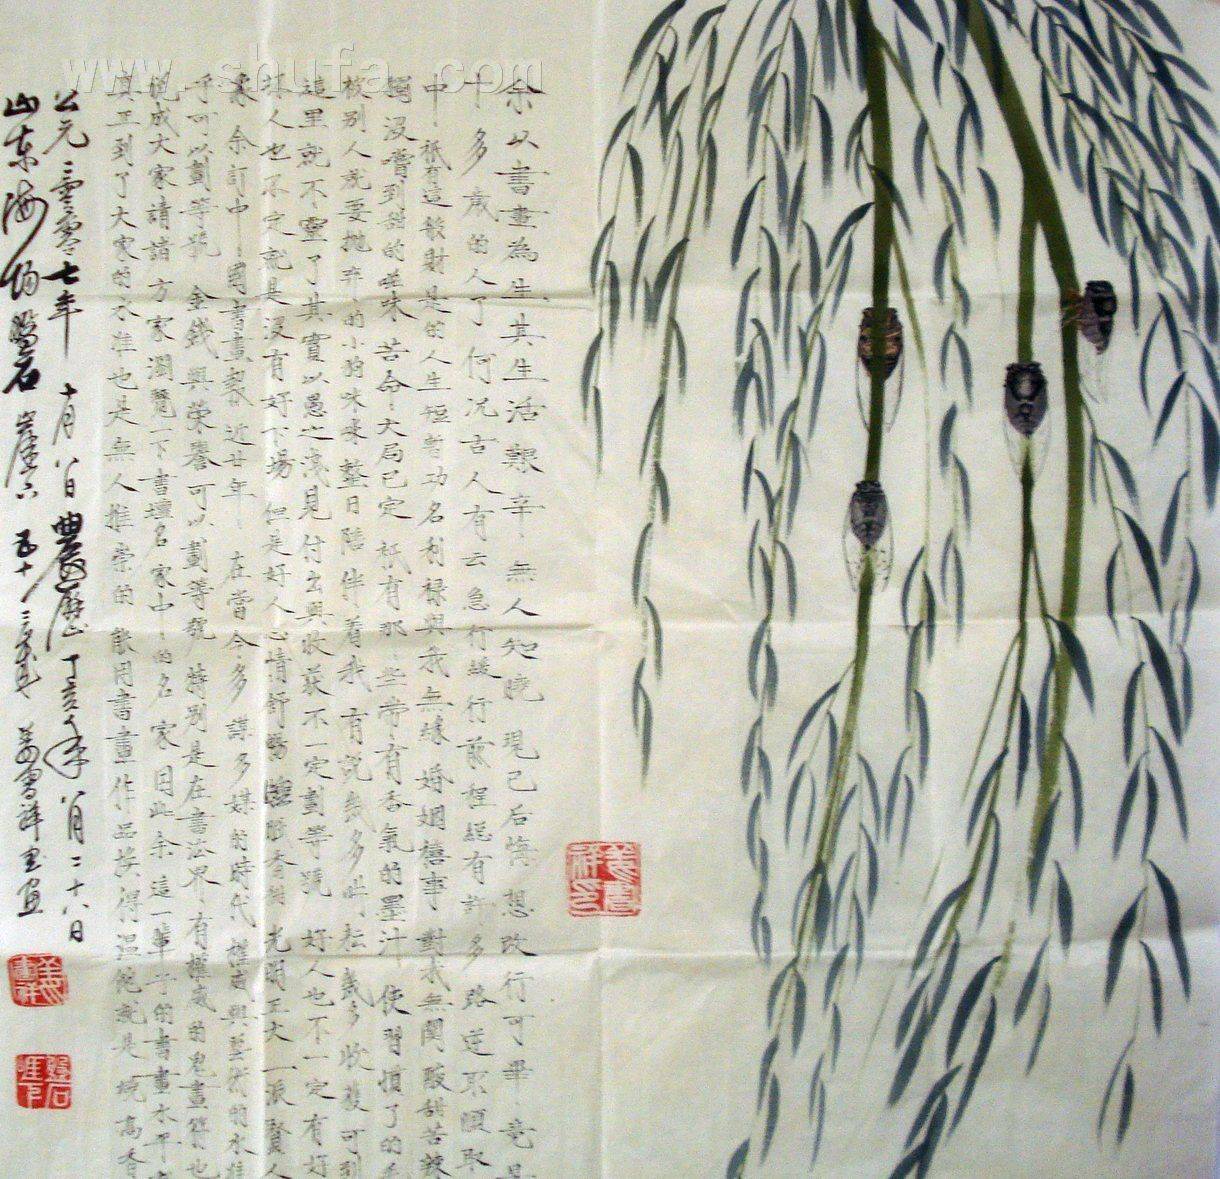 www.shufa.com
余以書畫為生其生活艱辛無人知曉 現已后悔想改行可畢竟是
十多歲的人了 何況古人有云急行緩行前程總有許多路逆取順取
中祇有這般財是的人生短暫功名利祿與我無緣 婚姻禧事對我無関酸甜苦辣
獨沒嘗到甜的味 苦命大局已定祇有那些帶有香氣的墨汁 使習慣了的
被別人就要拋弃的小狗咪咪整日陪伴着我 有説幾多耕耘 幾多收獲可到
這里就不靈了其實以愚之淺見付出與收获不一定劃等號 好人也不一定有好
坏人也不定就是沒有好下場 但是好人心情舒暢 睡眠香甜 光明正大一派賢人
象 余訂中國書畫報近廿年 在當今多謀多媒的時代 權威與藝術的水準
乎可以劃等號 金錢與榮譽可以劃等號 特別是在書法界有權威的鬼畫符也
説成大家請諸方家瀏覽一下書壇名家中的名家因此余這一輩子的書畫水平
真正到了大家的水准也是無人推崇的 能用書畫作品換得温飽就是燒高香
公元二零零七年十月八日農歷丁亥年八月二十八日
山东海陽盤石 五十三歲 姜書祥書画
姜書祥印
姜書祥
盤石